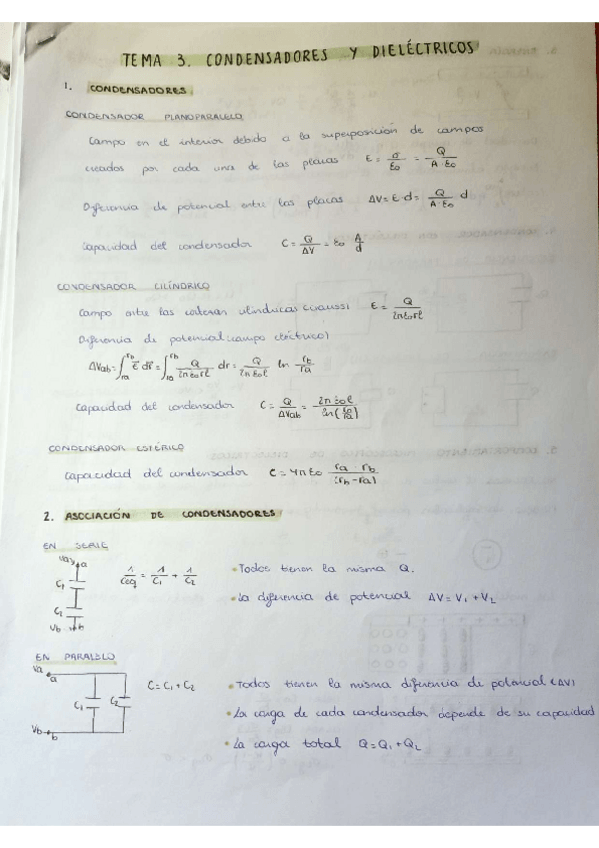 TEMA 3. CONDENSADORES Y DIELÉCTRICOS
1. CONDENSADORES
CONDENSADOR PLANOPARALELO
Campo en el interior debido a la superposición de campos
creados por cada una de las placas E = σ/ε0 = Q/(A·ε0)
Diferencia de potencial entre las placas ΔV = E·d = Q/(A·ε0) d
Capacidad del condensador C = Q/ΔV = ε0 A/d
CONDENSADOR CILÍNDRICO
Campo entre las cilíndricas (Gauss) E = Q/(2πε0rl)
Diferencia de potencial (campo eléctrico)
ΔVab = ∫ra^rb E dr = ∫ra^rb Q/(2πε0rl) dr = Q/(2πε0l) ln rb/ra
Capacidad del condensador C = Q/ΔVab = 2πε0l/ln(rb/ra)
CONDENSADOR ESFÉRICO
Capacidad del condensador C = 4πε0 ra·rb/(rb-ra)
2. ASOCIACIÓN DE CONDENSADORES
EN SERIE
Va a
C1
C2
Vb b
1/Ceq = 1/C1 + 1/C2
• Todos tienen la misma Q.
• La diferencia de potencial ΔV = V1 + V2
EN PARALELO
Va a
C1 C2
Vb b
C = C1 + C2
• Todos tienen la misma diferencia de potencial (ΔV)
• La carga de cada condensador depende de su capacidad
• La carga total Q = Q1 + Q2